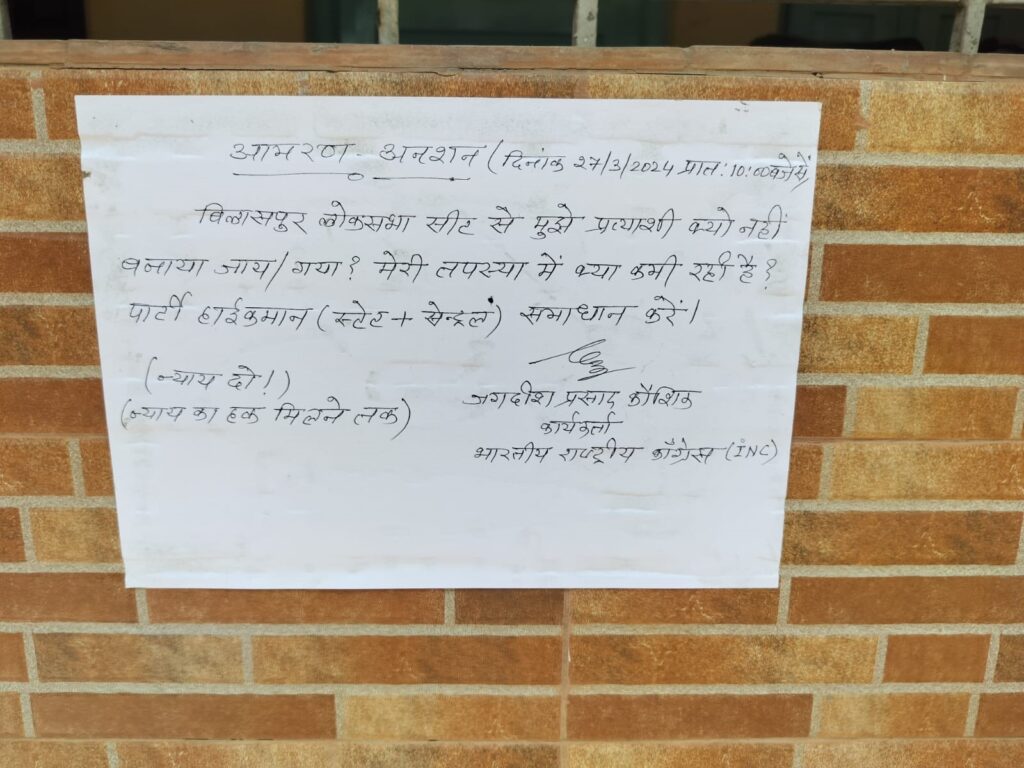 आमरण अनशन (दिनांक 27/3/2024 प्रात: 10:00बजेसे)
बिलासपुर लोकसभा सीट से मुझे प्रत्याशी क्यो नहीं
बनाया जाय/गया? मेरी तपस्या में क्या कमी रही है?
पार्टी हाईकमान (स्टेट + सेन्ट्रल) समाधान करें।
(न्याय दो!)
(न्याय का हक मिलने तक)
जगदीश प्रसाद कौशिक
कार्यकर्ता
भारतीय राष्ट्रीय काँग्रेस (INC)